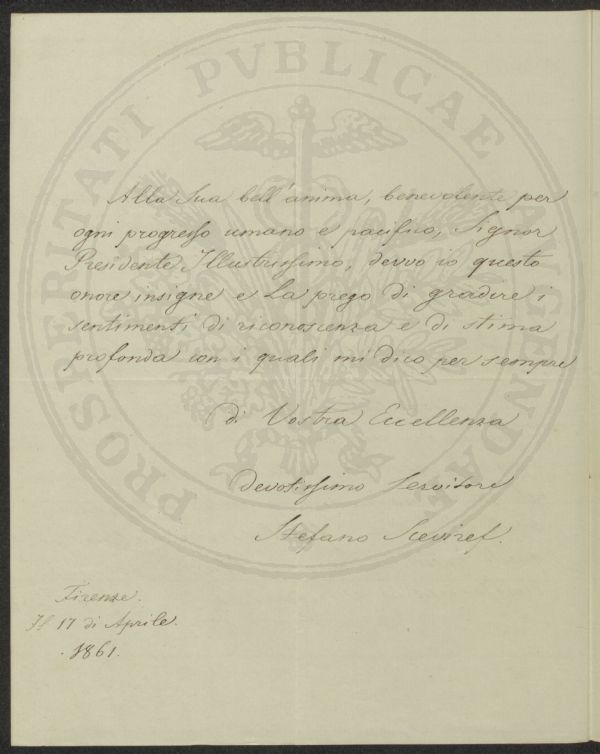 PROSPERITATI PVBLICAE AVGENDAE
Alla Sua bell'anima, benevolente per
ogni progresso umano e pacifico, Signor
Presidente Illustrissimo, devvo io questo
onore insigne e La prego di gradire i
sentimenti di riconoscenza e di stima
profonda con i quali mi dico per sempre
di Vostra Eccellenza
devotissimo Servitore
Stefano Sceviref.
Firenze.
Il 17 di Aprile.
1861.